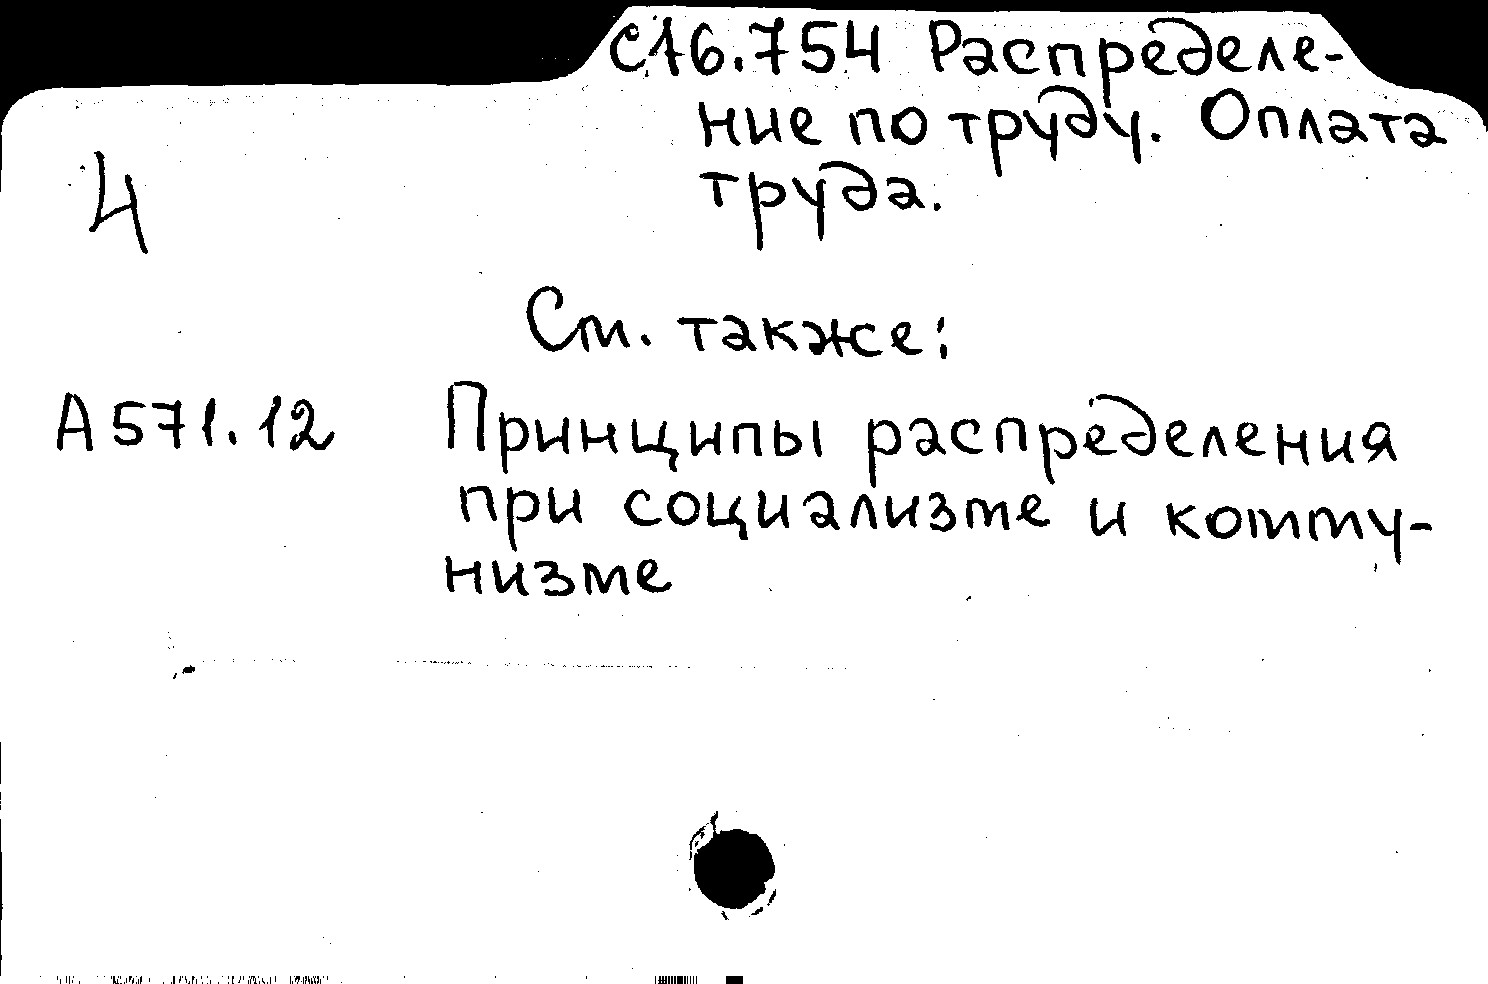 С16.754 Распределе-
ние по труду. Оплата
труда.
4
См. также:
А571.12 Принципы распределения
при социализме и комму-
низме